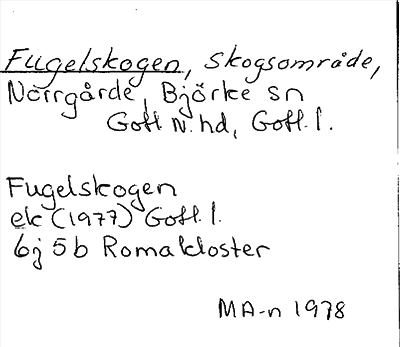 Fugelskogen, skogsområde,
Norrgårde, Björke sn
Gotl N. hd, Gotl. l.
Fugelskogen
ek (1977) Gotl. l.
6j 5b Romakloster
MA-n 1978